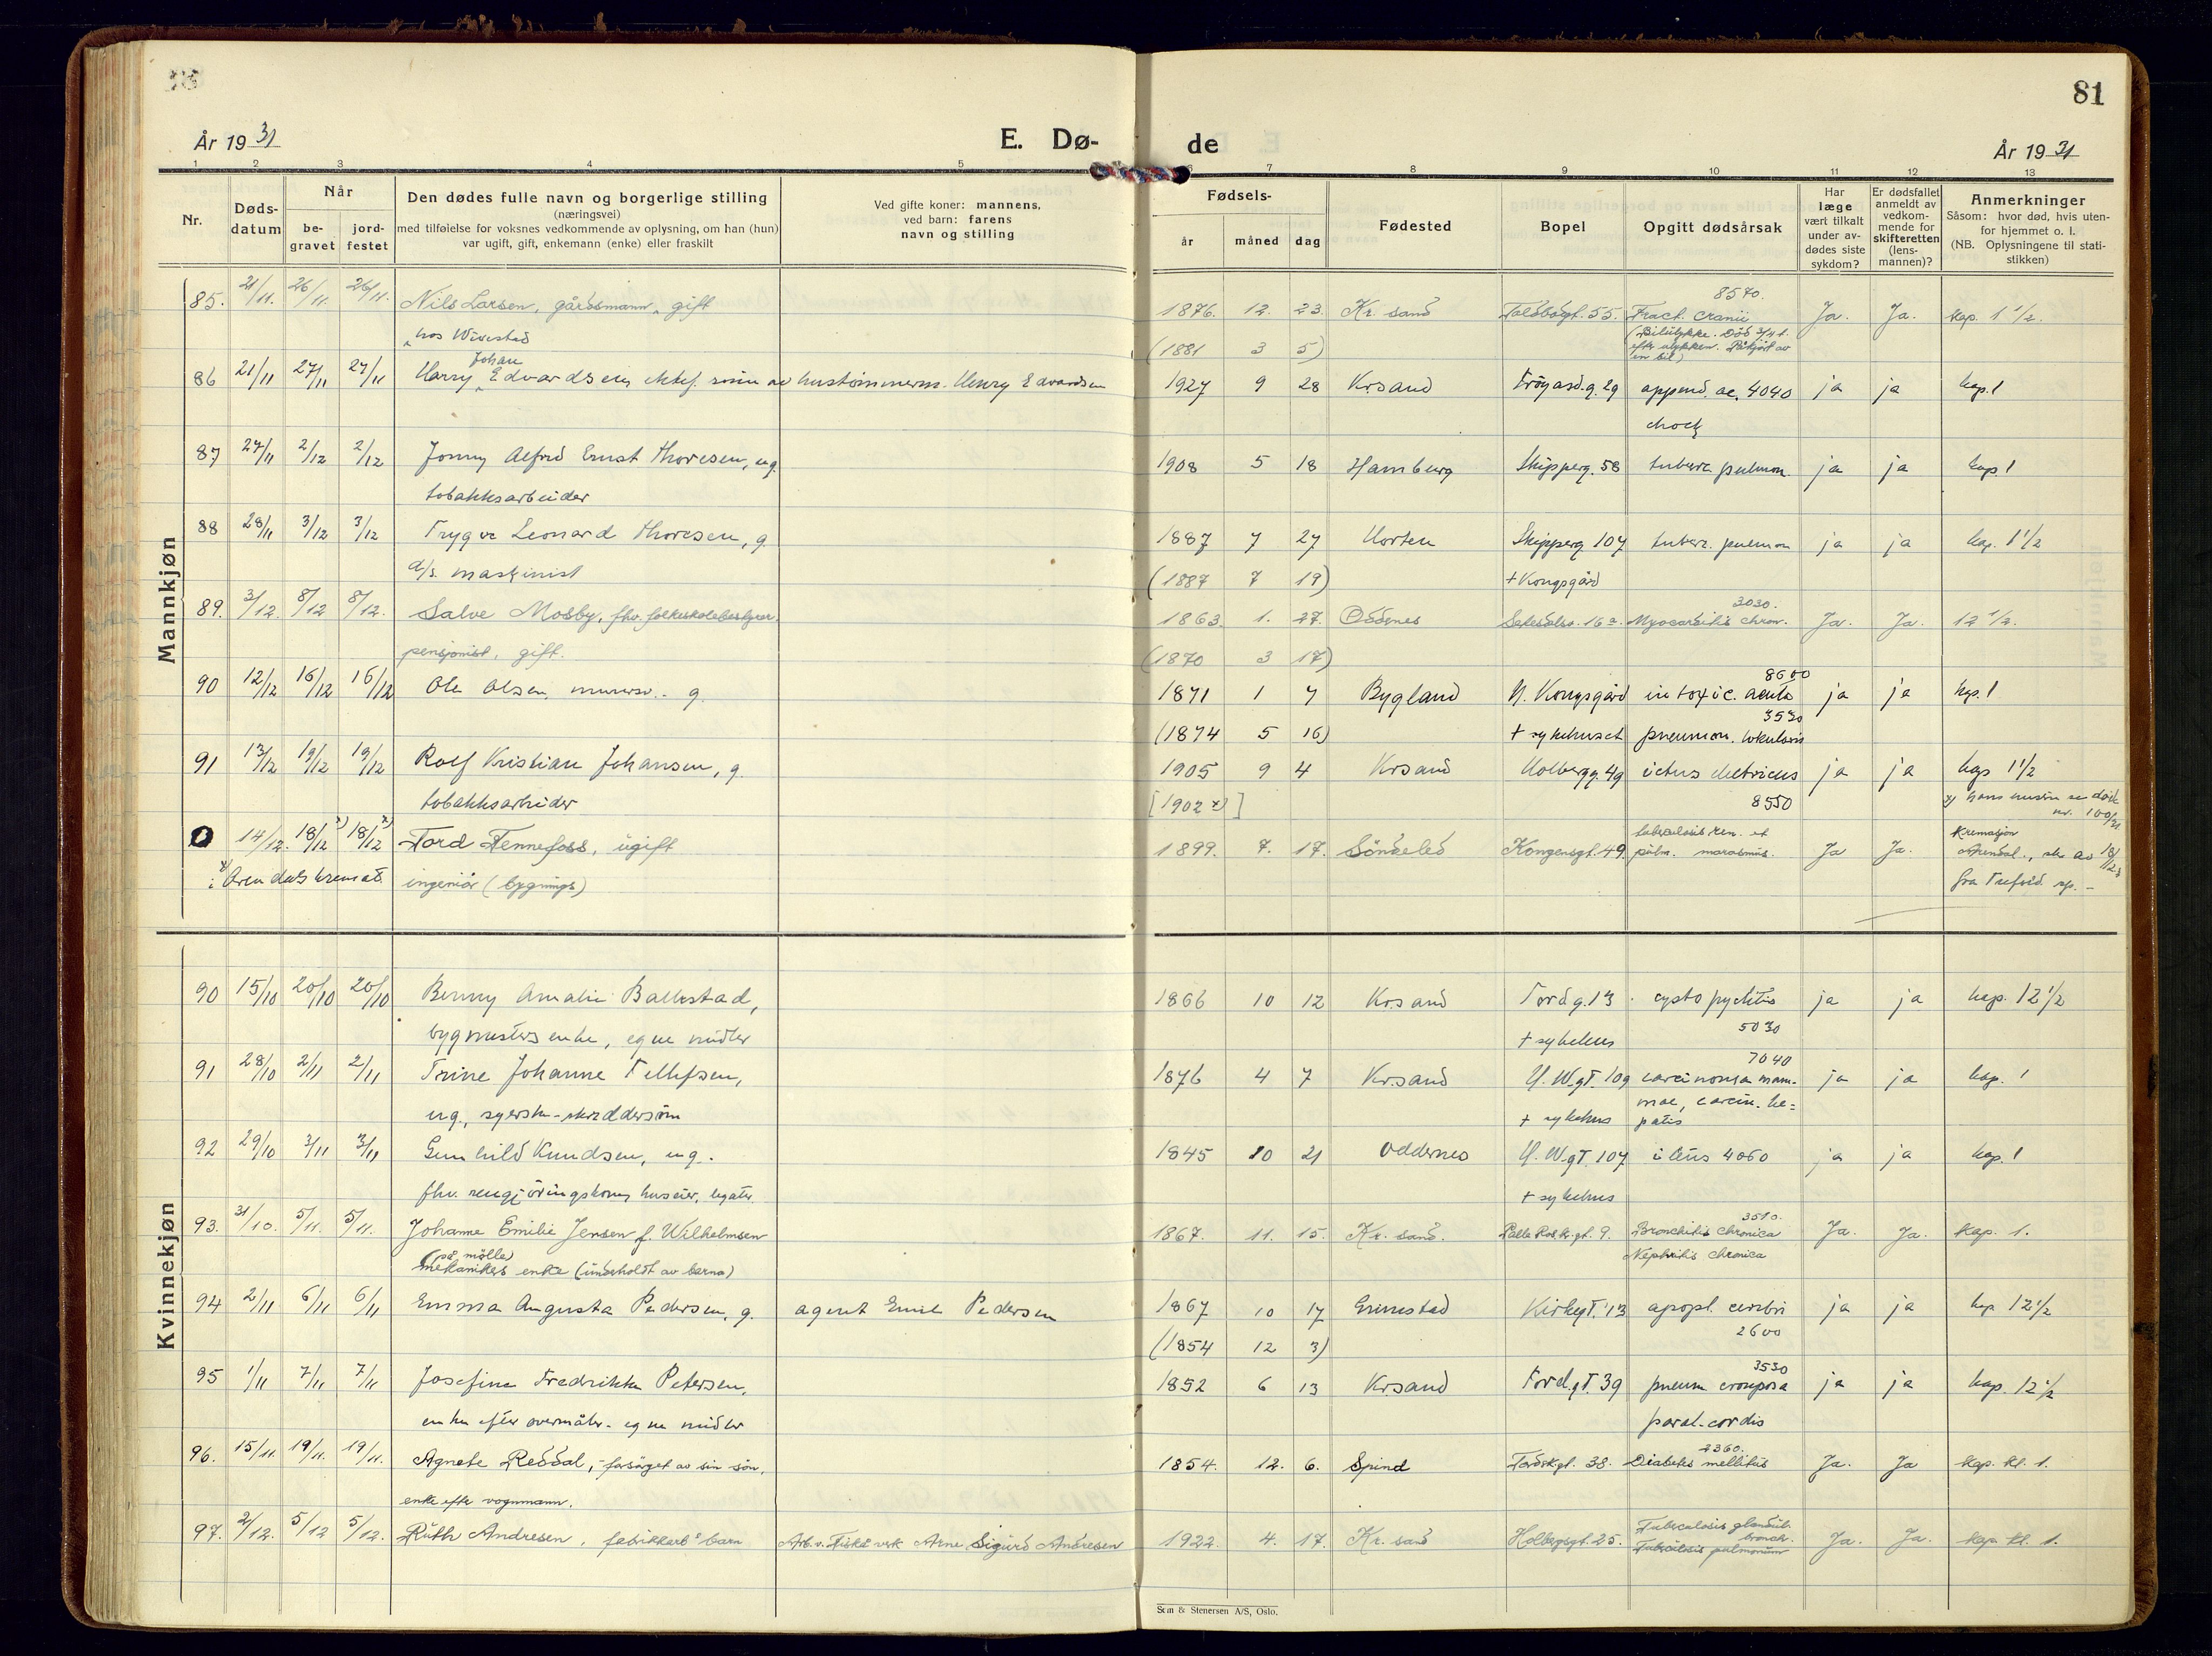 81
År 1931
E. Dø-
de
År 1931
1 2 3 4 5
7 8 9 10 11 12 13
Nr.
Døds-
datum
Når
be-
gravet
jord-
festet
Den dødes fulle navn og borgerlige stilling
(næringsvei)
med tilføielse for voksnes vedkommende av oplysning, om han (hun)
var ugift, gift, enkemann (enke) eller fraskilt
Ved gifte koner: mannens,
ved barn: farens
navn og stilling
Fødsels-
år måned dag
Fødested
Bopel
Opgitt dødsårsak
Har
læge
vært tilkalt
under av-
dødes siste
sykdom?
Er dødsfallet
anmeldt av
vedkom-
mende for
skifteretten
(lens-
mannen)?
Anmerkninger
Såsom: hvor død, hvis uten-
for hjemmet o. l.
(NB. Oplysningene til stati-
stikken)
Mannkjøn
85. 21/11. 26/11. 26/11. Nils Larsen, gårdsmann, gift 1876. 12. 23. Kr. sand Toldbodgt. 55. 8570. Fract. cranii Ja. Ja. kap. 1 1/2.
hos Wivestad (1881 3 5) (Bilulykke. Død 3/4 t.
efter ulykken. Påkjørt av
en bil)
86 21/11 27/11 27/11 Harry Johan Edvardsen, ektef. sønn av hustømmerm. Henry Edvardsen 1927 9 28 Krsand Frøyasd.g. 29 append. ac. 4040 ja ja kap. 1
chock
87 27/11 2/12 2/12 Jonny Alfred Ernst Thoresen, ug. 1908 5 18 Hamburg Skipperg. 58 tuberc. pulmon. ja ja kap 1
tobakksarbeider
88 28/11 3/12 3/12 Trygve Leonard Thoresen, g. 1887 7 27 Horten Skipperg 107 tuberc. pulmon ja ja kap. 1 1/2
d/s. maskinist (1887 7 19) + Kongsgård
89. 3/12. 8/12 8/12. Salve Mosby, fhv. folkeskolebestyrer. 1863. 1. 27. Oddernes Setesdalsv. 16 a. 3030. Myocarditis chron. Ja. Ja. 12 1/2.
pensjonist, gift. (1870 3 17)
90 12/12 16/12 16/12 Ole Olsen, murersv.. g. 1871 1 7 Bygland N. Kongsgård 8600 intoxic. acuta ja ja kap. 1
(1874 5 16) + sykehuset 3530 pneumon. lobularis
91 13/12 19/12 19/12 Rolf Kristian Johansen, g. 1905 9 4 Krsand Holbergg. 49 ictus electricus ja ja kap 1 1/2
tobakksarbeider [1902 x)] 8550 x) hans hustru se døde nr. 100/31
0 14/12. 18/12 x) 18/12 x) Tord Fennefoss, ugift 1899. 7. 17. Søndeled Kongensgt. 49. tuberculosis ren. et Ja Ja. Kremasjon
pulm. marasmus. Arendal.,
x) i Arendals kremat. ingeniør (bygnings) fra
Kvinnekjøn
90 15/10 20/10 20/10 Benny Amalie Ballestad, 1866 10 12 Krsand Tordg. 13 cystopyelitis ja ja kap. 12 1/2
bygmesters enke, egne midler + sykehus 5030
91 28/10 2/11 2/11 Trine Johanne Tellefsen, 1876 4 7 Kr.sand H. W.gT. 109 7040 carcinoma mam- ja ja kap. 1
ug., syerske-skreddersøm + sykehus mae, carcin. he=
patis
92 29/10 3/11 3/11 Gunhild Knudsen, ug. 1845 10 21 Oddernes H. W.gT. 107 ileus 4060 ja ja kap. 1
fhv. rengjøringskone, huseier, legater. + sykehus
93. 31/10. 5/11. 5/11. Johanne Emilie Jensen f. Wilhelmsen 1867. 11. 15. Kr. sand. Palle Rosk.gt. 9. 3510. Bronchitis chronica Ja. Ja. Kap. 1.
(på mølle)
mekanikers enke (underholdt av barna) Nephritis chronica
94 2/11 6/11 6/11 Emma Augusta Pedersen, g. agent Emil Pedersen 1867 10 17 Grimstad KirkegT. 13 apopl. cerebri ja ja kap 12 1/2
(1854 12 3) 2600
95 1/11 7/11 7/11 Josefine Fredrikke Petersen, 1852 6 13 Krsand Tord.gT. 39 3530 pneum crouposa ja ja kap. 12 1/2
enke efter overmåler. egne midler paral. cordis
96. 15/11. 19/11. 19/11. Agnete Reddal, - forsørget av sin søn, 1854. 12. 6. Spind Tordskgt. 38. 2360. Diabetes mellitus Ja. Ja Kap. kl. 1.
enke efter vognmann.
97. 2/12. 5/12 5/12. Ruth Andresen, fabrikkarb's barn Arb. v. Fiskå verk Arne Sigurd Andresen 1922. 4. 17. Kr. sand Holbergsgt. 25. Tuberculosis glandul. Ja. Ja. Kap kl. 1.
bronch.
Tuberculosis pulmonum
Sem & Stenersen A/S, Oslo.